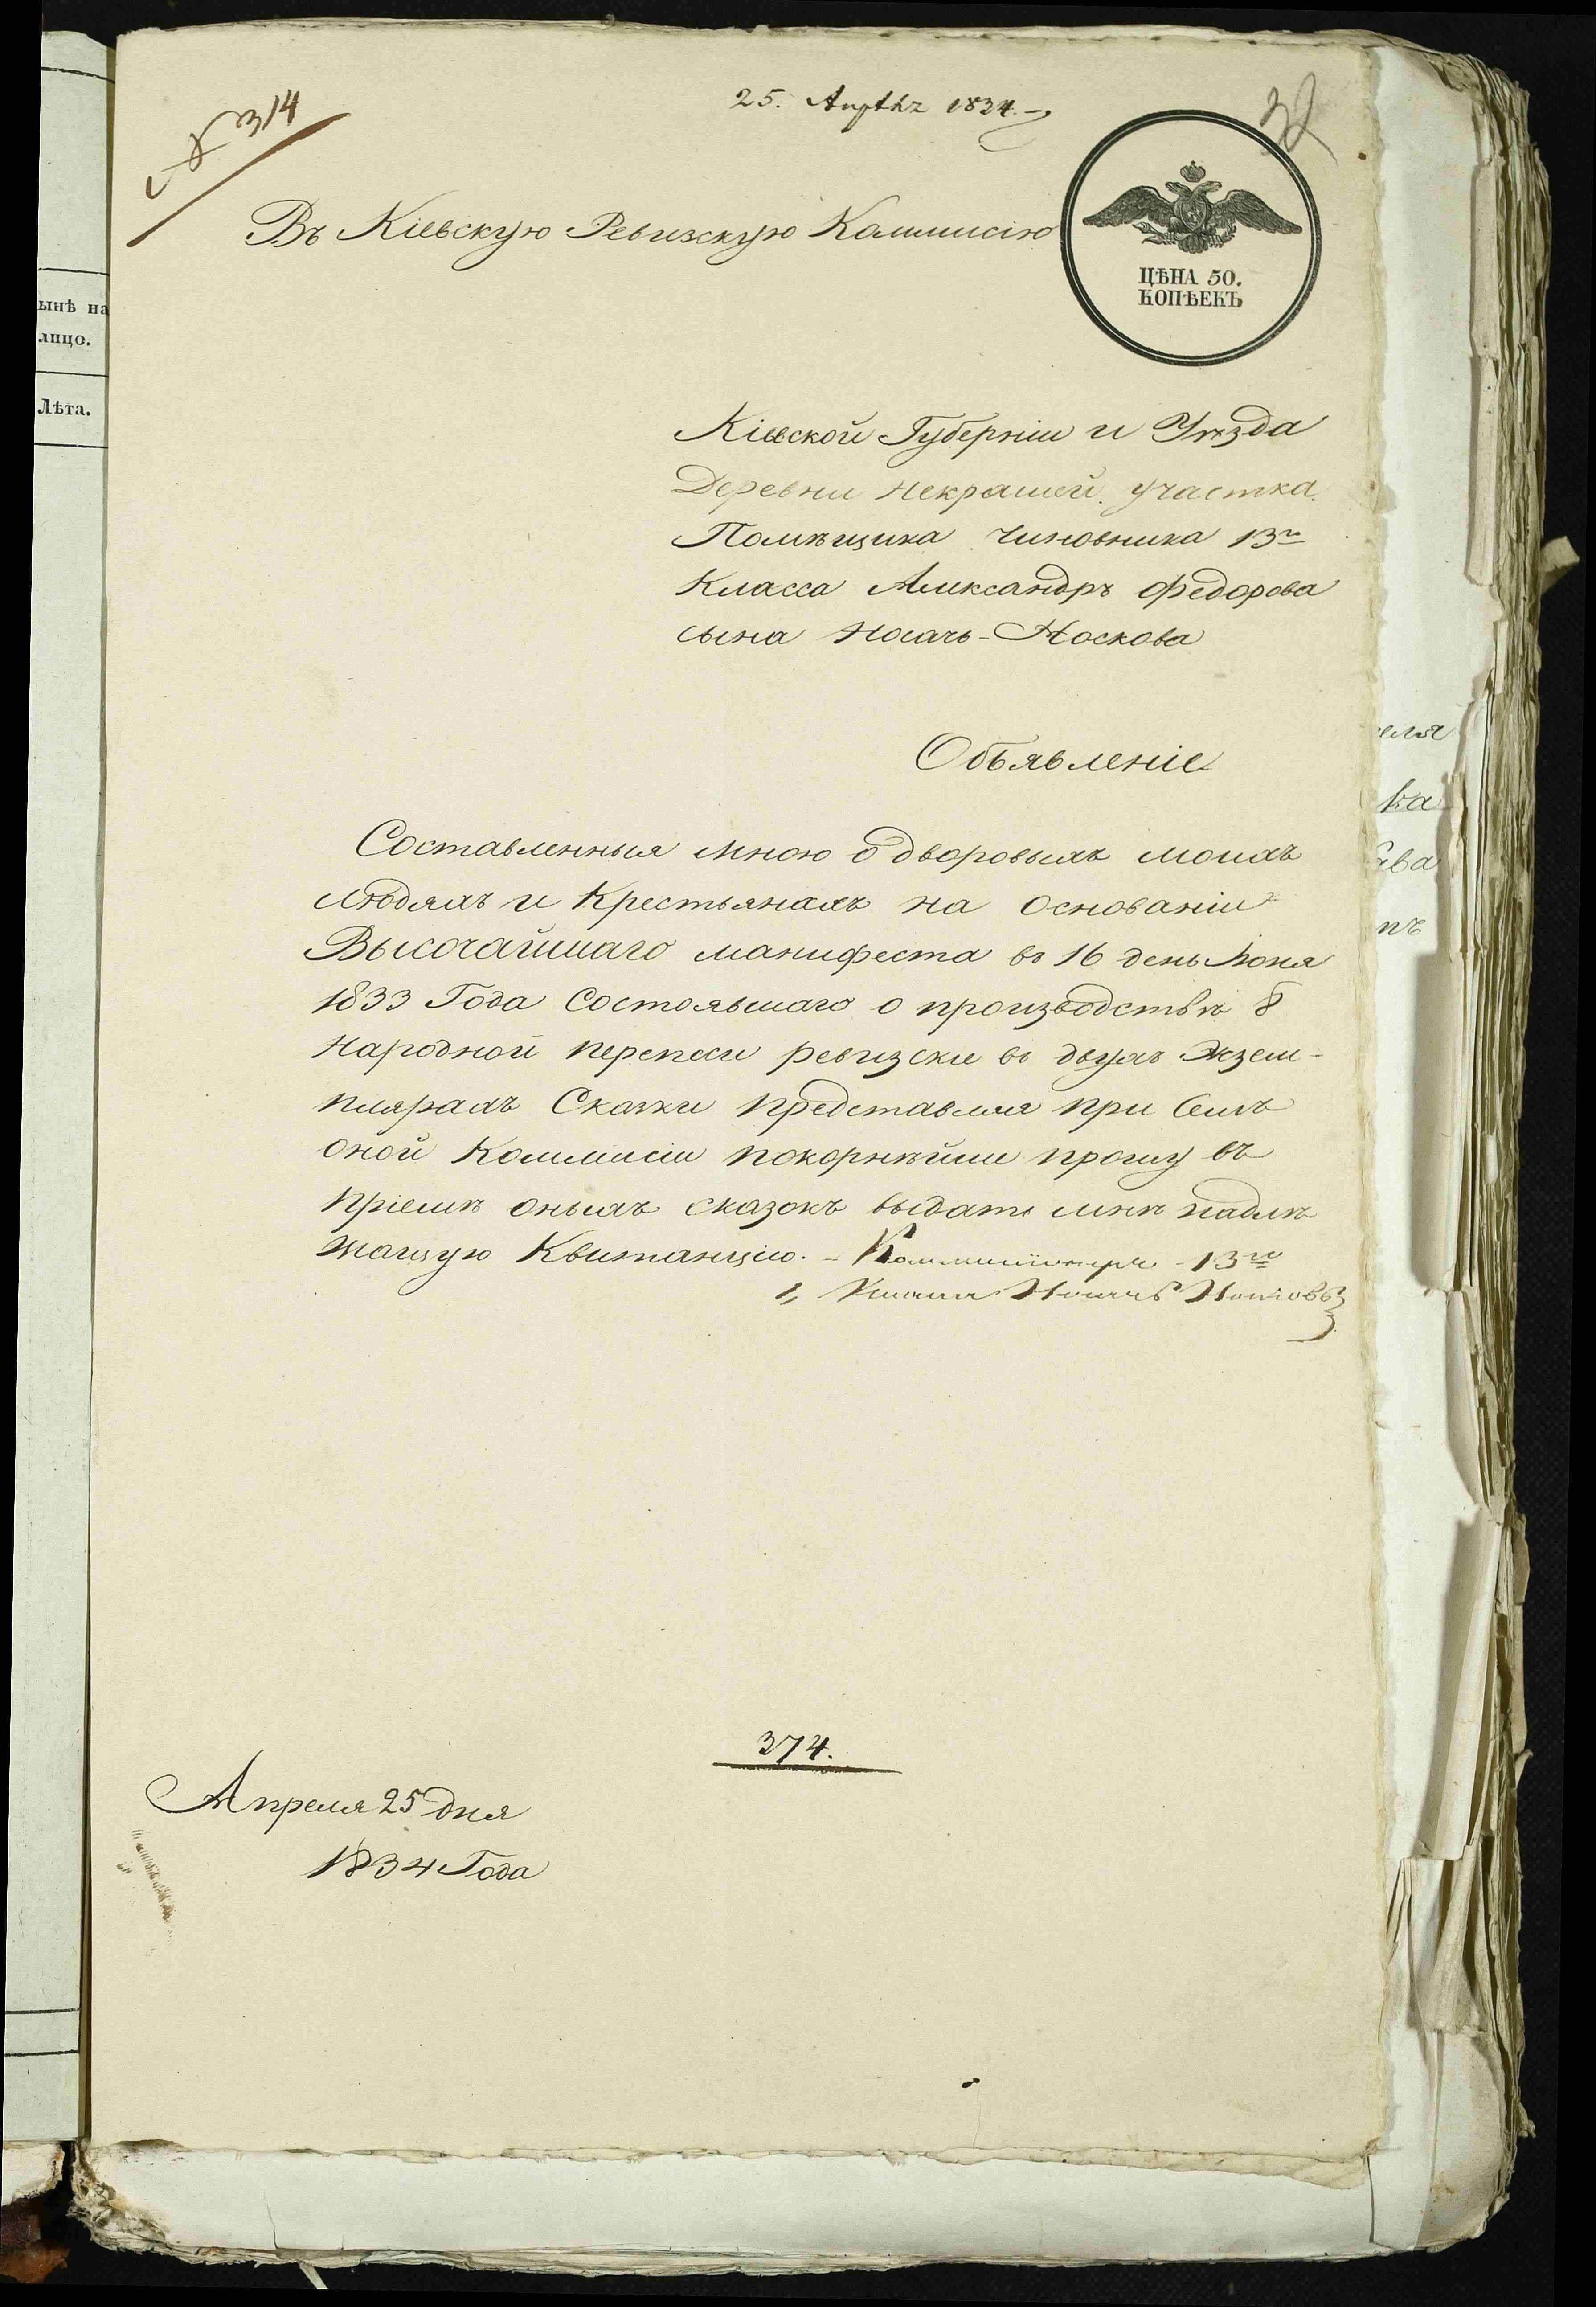 № 314
25. Апрѣля 1834.
32
Въ Кіевскую Ревизскую Коммисію
ЦѢНА 50.
КОПѢЕКЪ
ынѣ на
лицо.
Лѣта.
Кіевской Губерніи и Уѣзда
Деревни Некрашей участка
Помѣщика Чиновника 13го
Класса Александръ Федорова
сына Носачъ-Носкова
Объявленіе
Составленныя мною о дворовыхъ моихъ
людяхъ и Крестьянахъ на основаніи
Высочайшаго манифеста въ 16 день Іюня
1833 Года Состоявшаго о производствѣ 8
Народной переписи ревизскіе въ двухъ Экзем-
плярахъ Сказки представляя при Семъ
оной Коммисіи покорнѣйше прошу въ
пріемѣ оныхъ сказокъ выдать мнѣ надлѣ
жащую Квитанцію. - Коммисіонеръ 13го
Класса Носачъ Носковъ
374.
Апреля 25 дня
1834 Года
еля
ка
ва